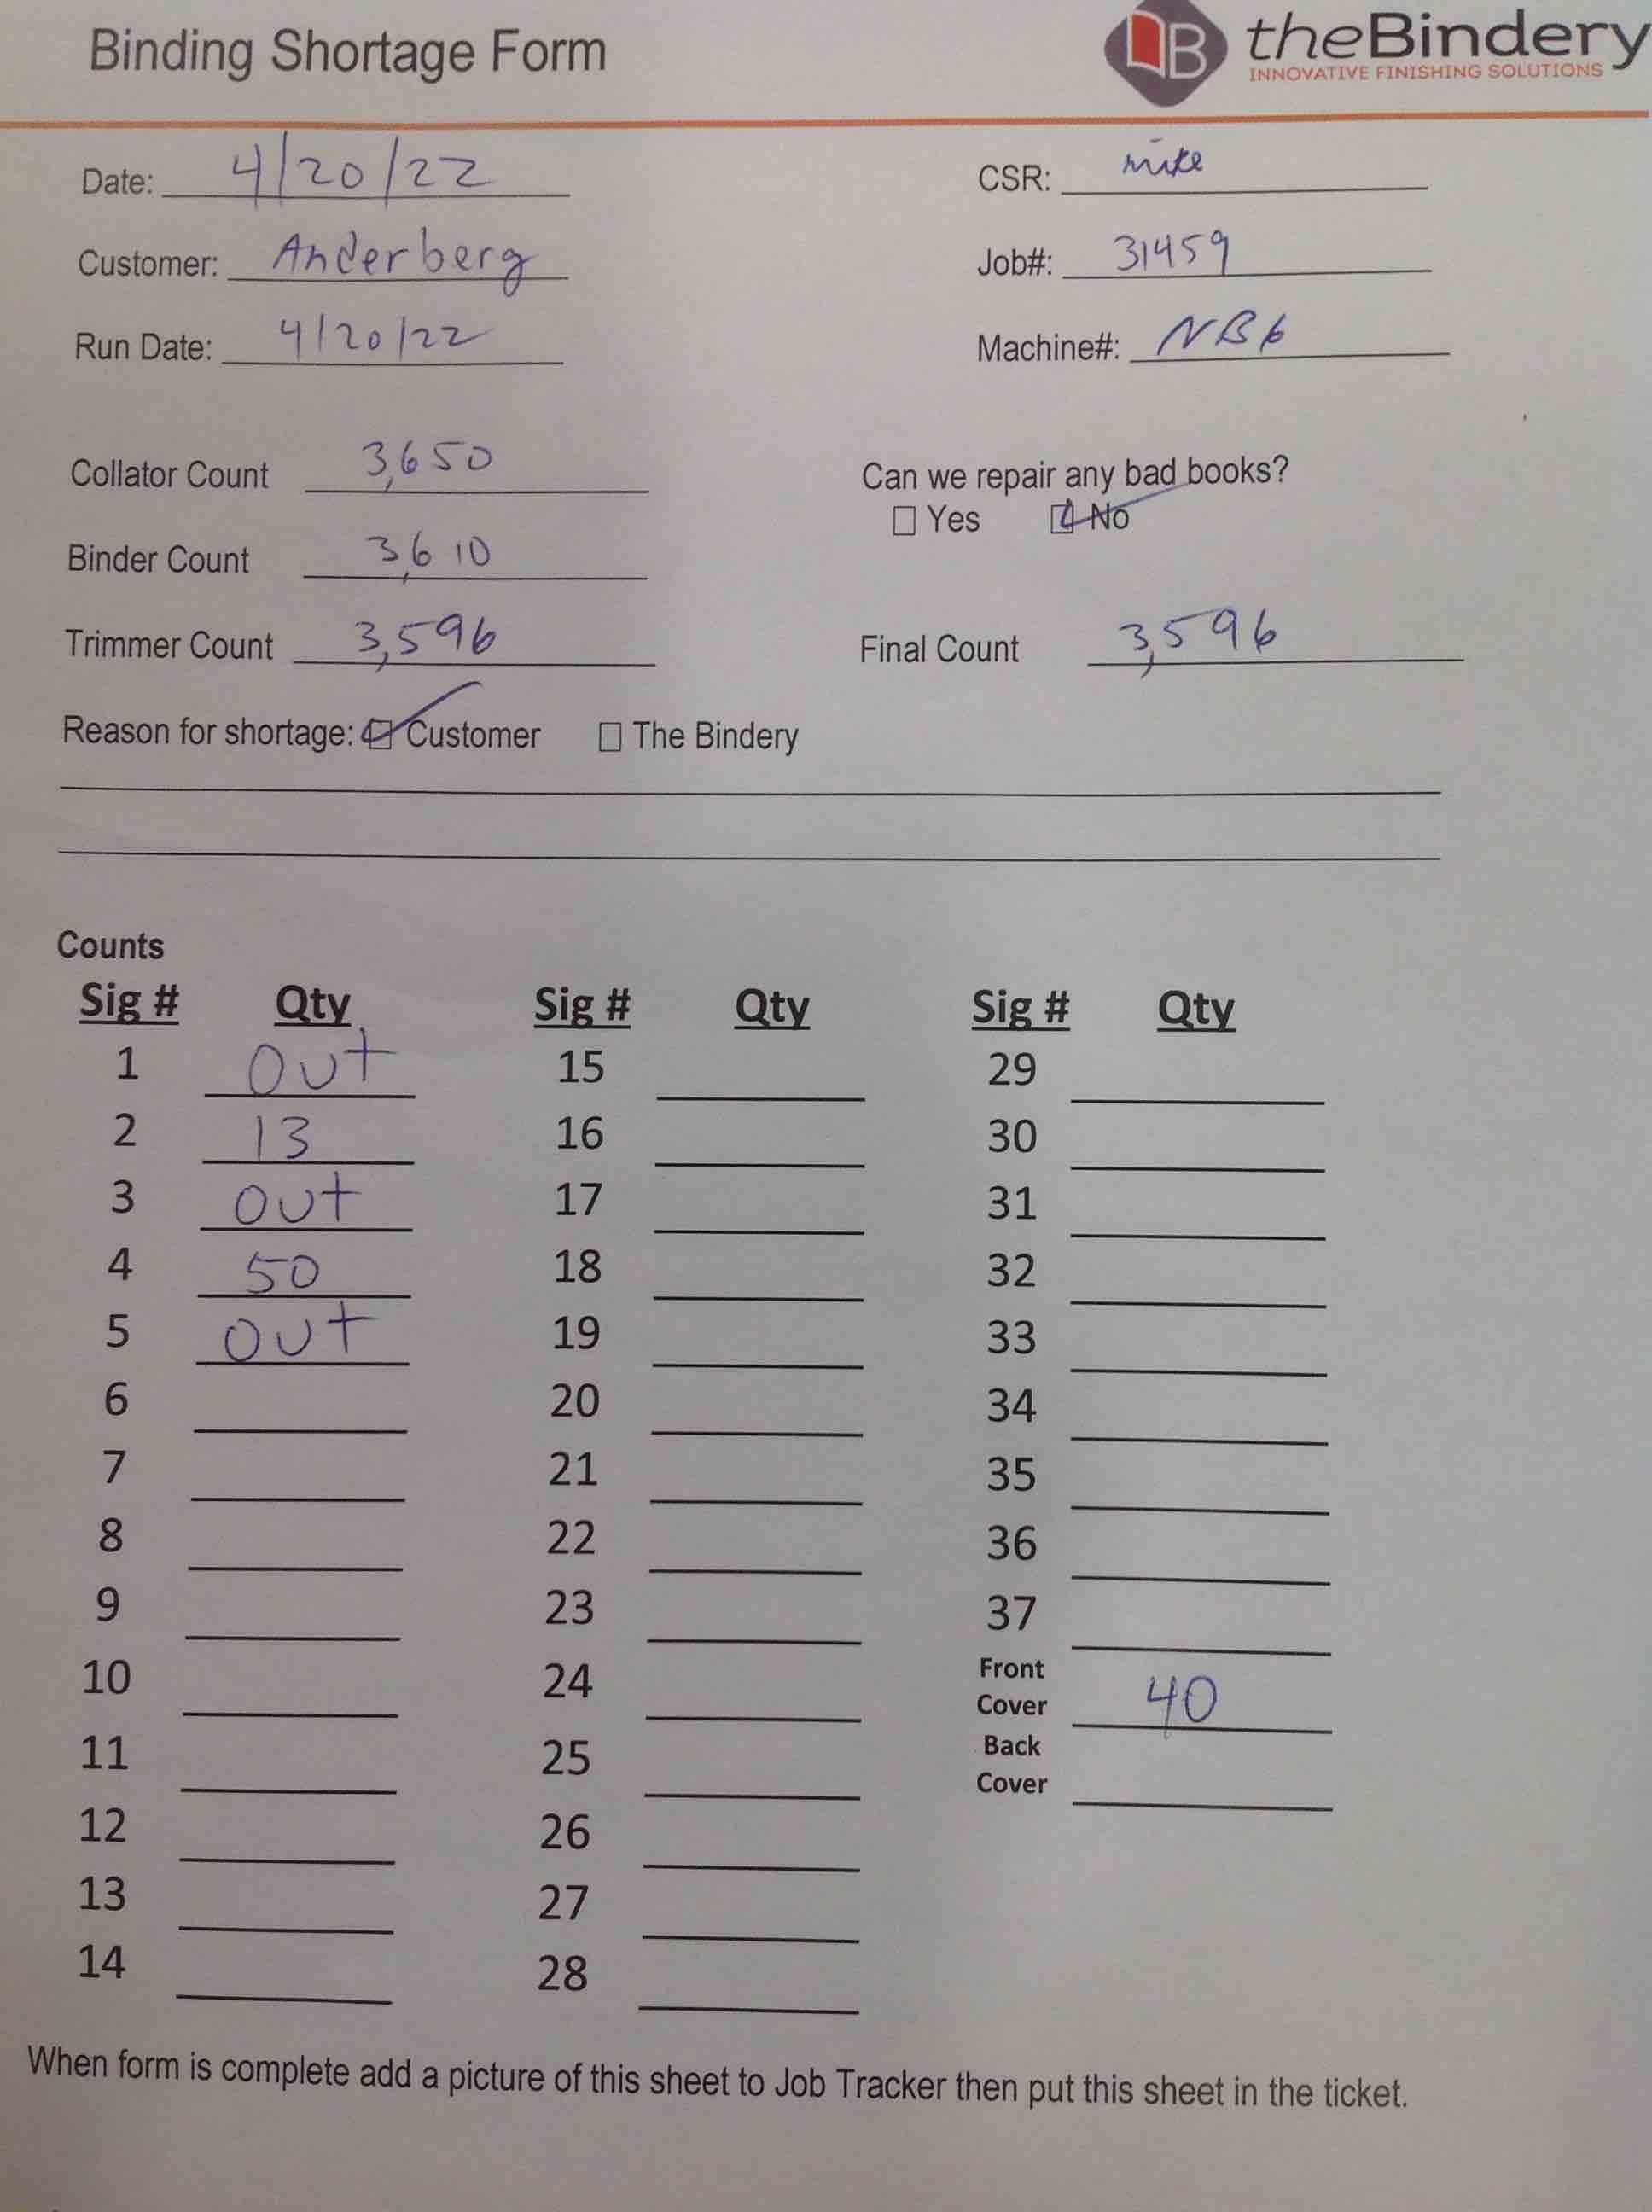 Binding Shortage Form
B theBindery
INNOVATIVE FINISHING SOLUTIONS
Date: 4/20/22 CSR: mike
Customer: Anderberg Job#: 31459
Run Date: 4/20/22 Machine#: NB6
Collator Count 3,650 Can we repair any bad books?
Yes No
Binder Count 3,610
Trimmer Count 3,596 Final Count 3,596
Reason for shortage: Customer The Bindery
Counts
Sig # Qty Sig # Qty Sig # Qty
1 OUT 15 29
2 13 16 30
3 OUT 17 31
4 50 18 32
5 OUT 19 33
6 20 34
7 21 35
8 22 36
9 23 37
10 24 Front Cover 40
11 25 Back Cover
12 26
13 27
14 28
When form is complete add a picture of this sheet to Job Tracker then put this sheet in the ticket.